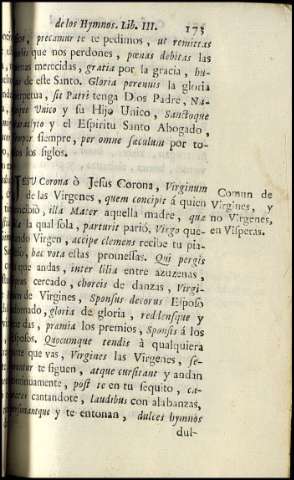 de los Hymnos. Lib. III. 173
precamur te te pedimos, ut remittas
que nos perdones, pœnas debitas las
merecidas, gratia por la gracia, hu-
de este Santo. Gloria perennis la gloria
perpetua, sit Patri tenga Dios Padre, Na-
Unico y su Hijo Unico, Sanctoque
y el Espiritu Santo Abogado,
siempre, per omne sæculum por to-
los siglos.
JESU Corona ò Jesus Corona, Virginum
de las Virgenes, quem concipit á quien
concibió, illa Mater aquella madre, quæ
la qual sola, parturit parió, Virgo que-
Virgen, accipe clemens recibe tu pia-
hæc vota estas promessas. Qui pergis
que andas, inter lilia entre azuzenas,
cercado, choreis de danzas, Virgi-
de Virgines, Sponsus decorus Esposo
adornado, gloria de gloria, reddensque y
das, præmia los premios, Sponsis á los
Esposos. Quocumque tendis á qualquiera
que vas, Virgines las Virgenes, se-
te siguen, atque cursitant y andan
continuamente, post te en tu sequito, ca-
cantandote, laudibus con alabanzas,
y te entonan, dulces hymnos
dul-
Comun de
Virgines, y
no Virgenes,
en Visperas.